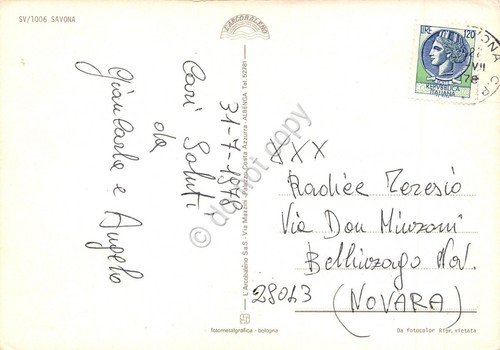 SV/1006 SAVONA
L'ARCOBALENO
31-7-1978
Cari Saluti
da
Giancarla e Angelo
L'Arcobaleno S.a.S. - Via Mazzini - Palazzo Costa Azzurra - ALBENGA Tel. 52781
LIRE 120
REPVBBLICA
ITALIANA
XXX
Radice Teresio
Via Don Minzoni
Bellinzago Nov.
28043 (NOVARA)
fotometalgrafica - bologna
Da fotocolor Ripr. vietata
do not copy